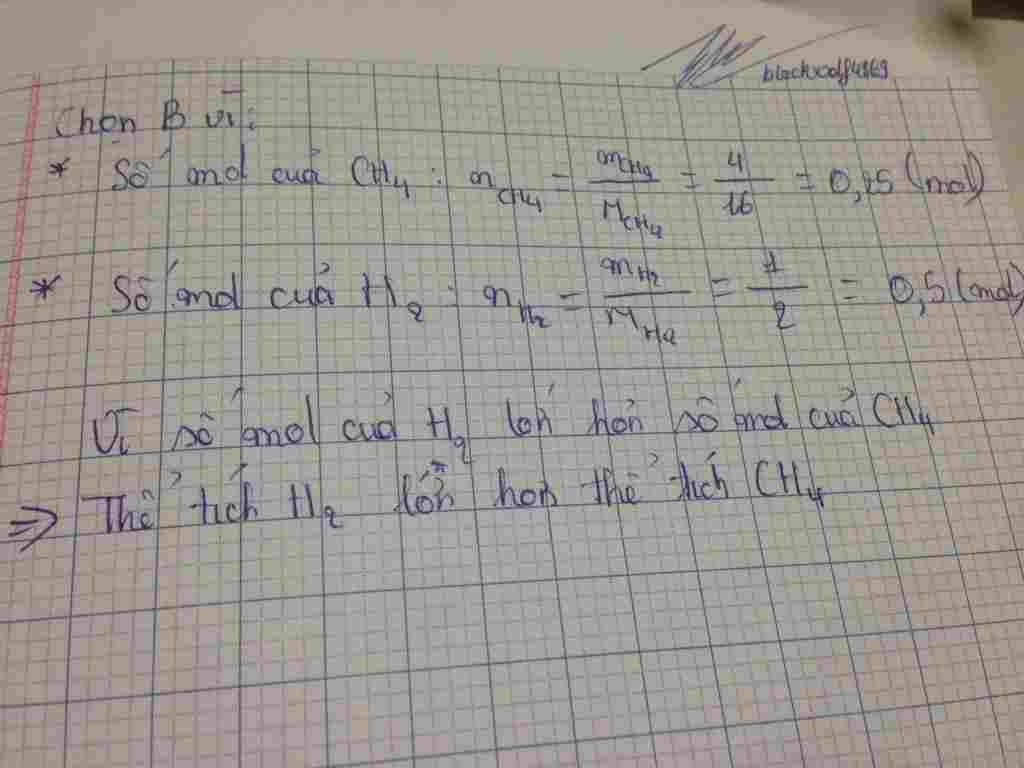 blackwolf4869
Chọn B vì:
* Số mol của CH₄ : n_CH₄ = m_CH₄ / M_CH₄ = 4/16 = 0,25 (mol)
* Số mol của H₂ : n_H₂ = m_H₂ / M_H₂ = 1/2 = 0,5 (mol)
Vì số mol của H₂ lớn hơn số mol của CH₄
⇒ Thể tích H₂ lớn hơn thể tích CH₄